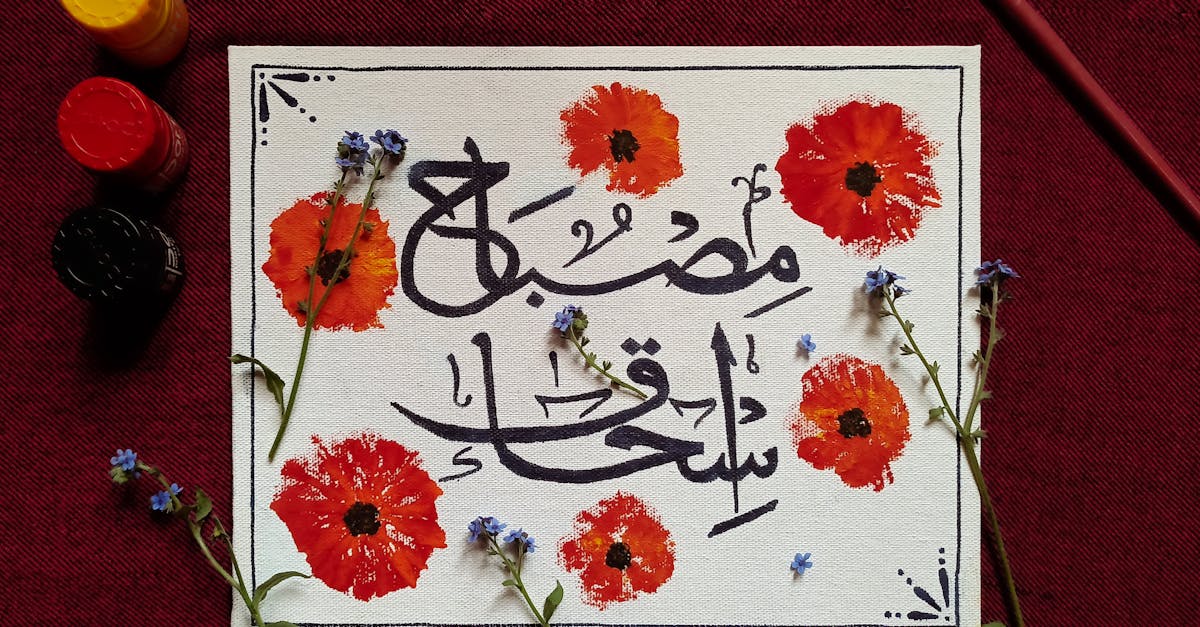 مِصباح
اِسحاق